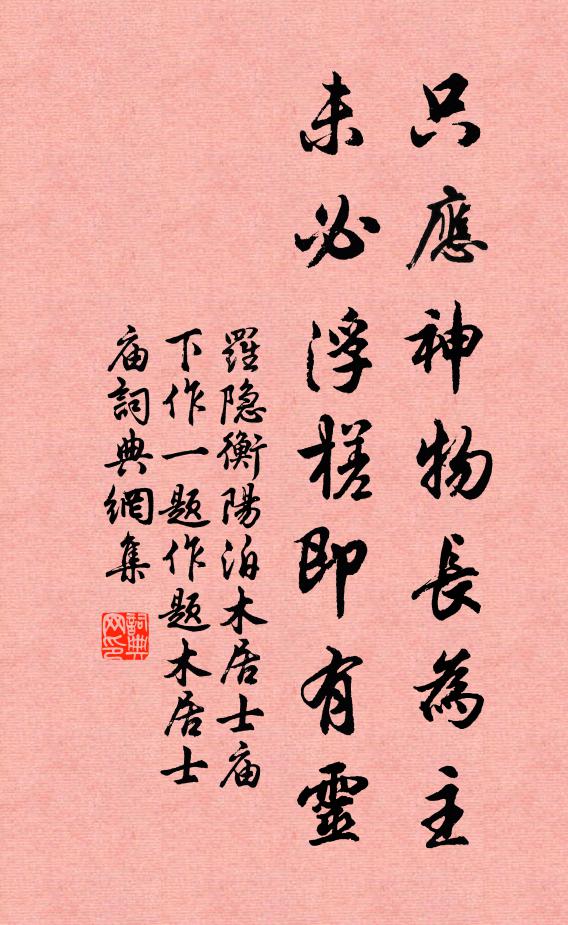 只應神物長為主
未必浮槎即有靈
羅隐衡陽泊木居士庙
下作一题作题木居士
庙詞典網集
詞典
网印